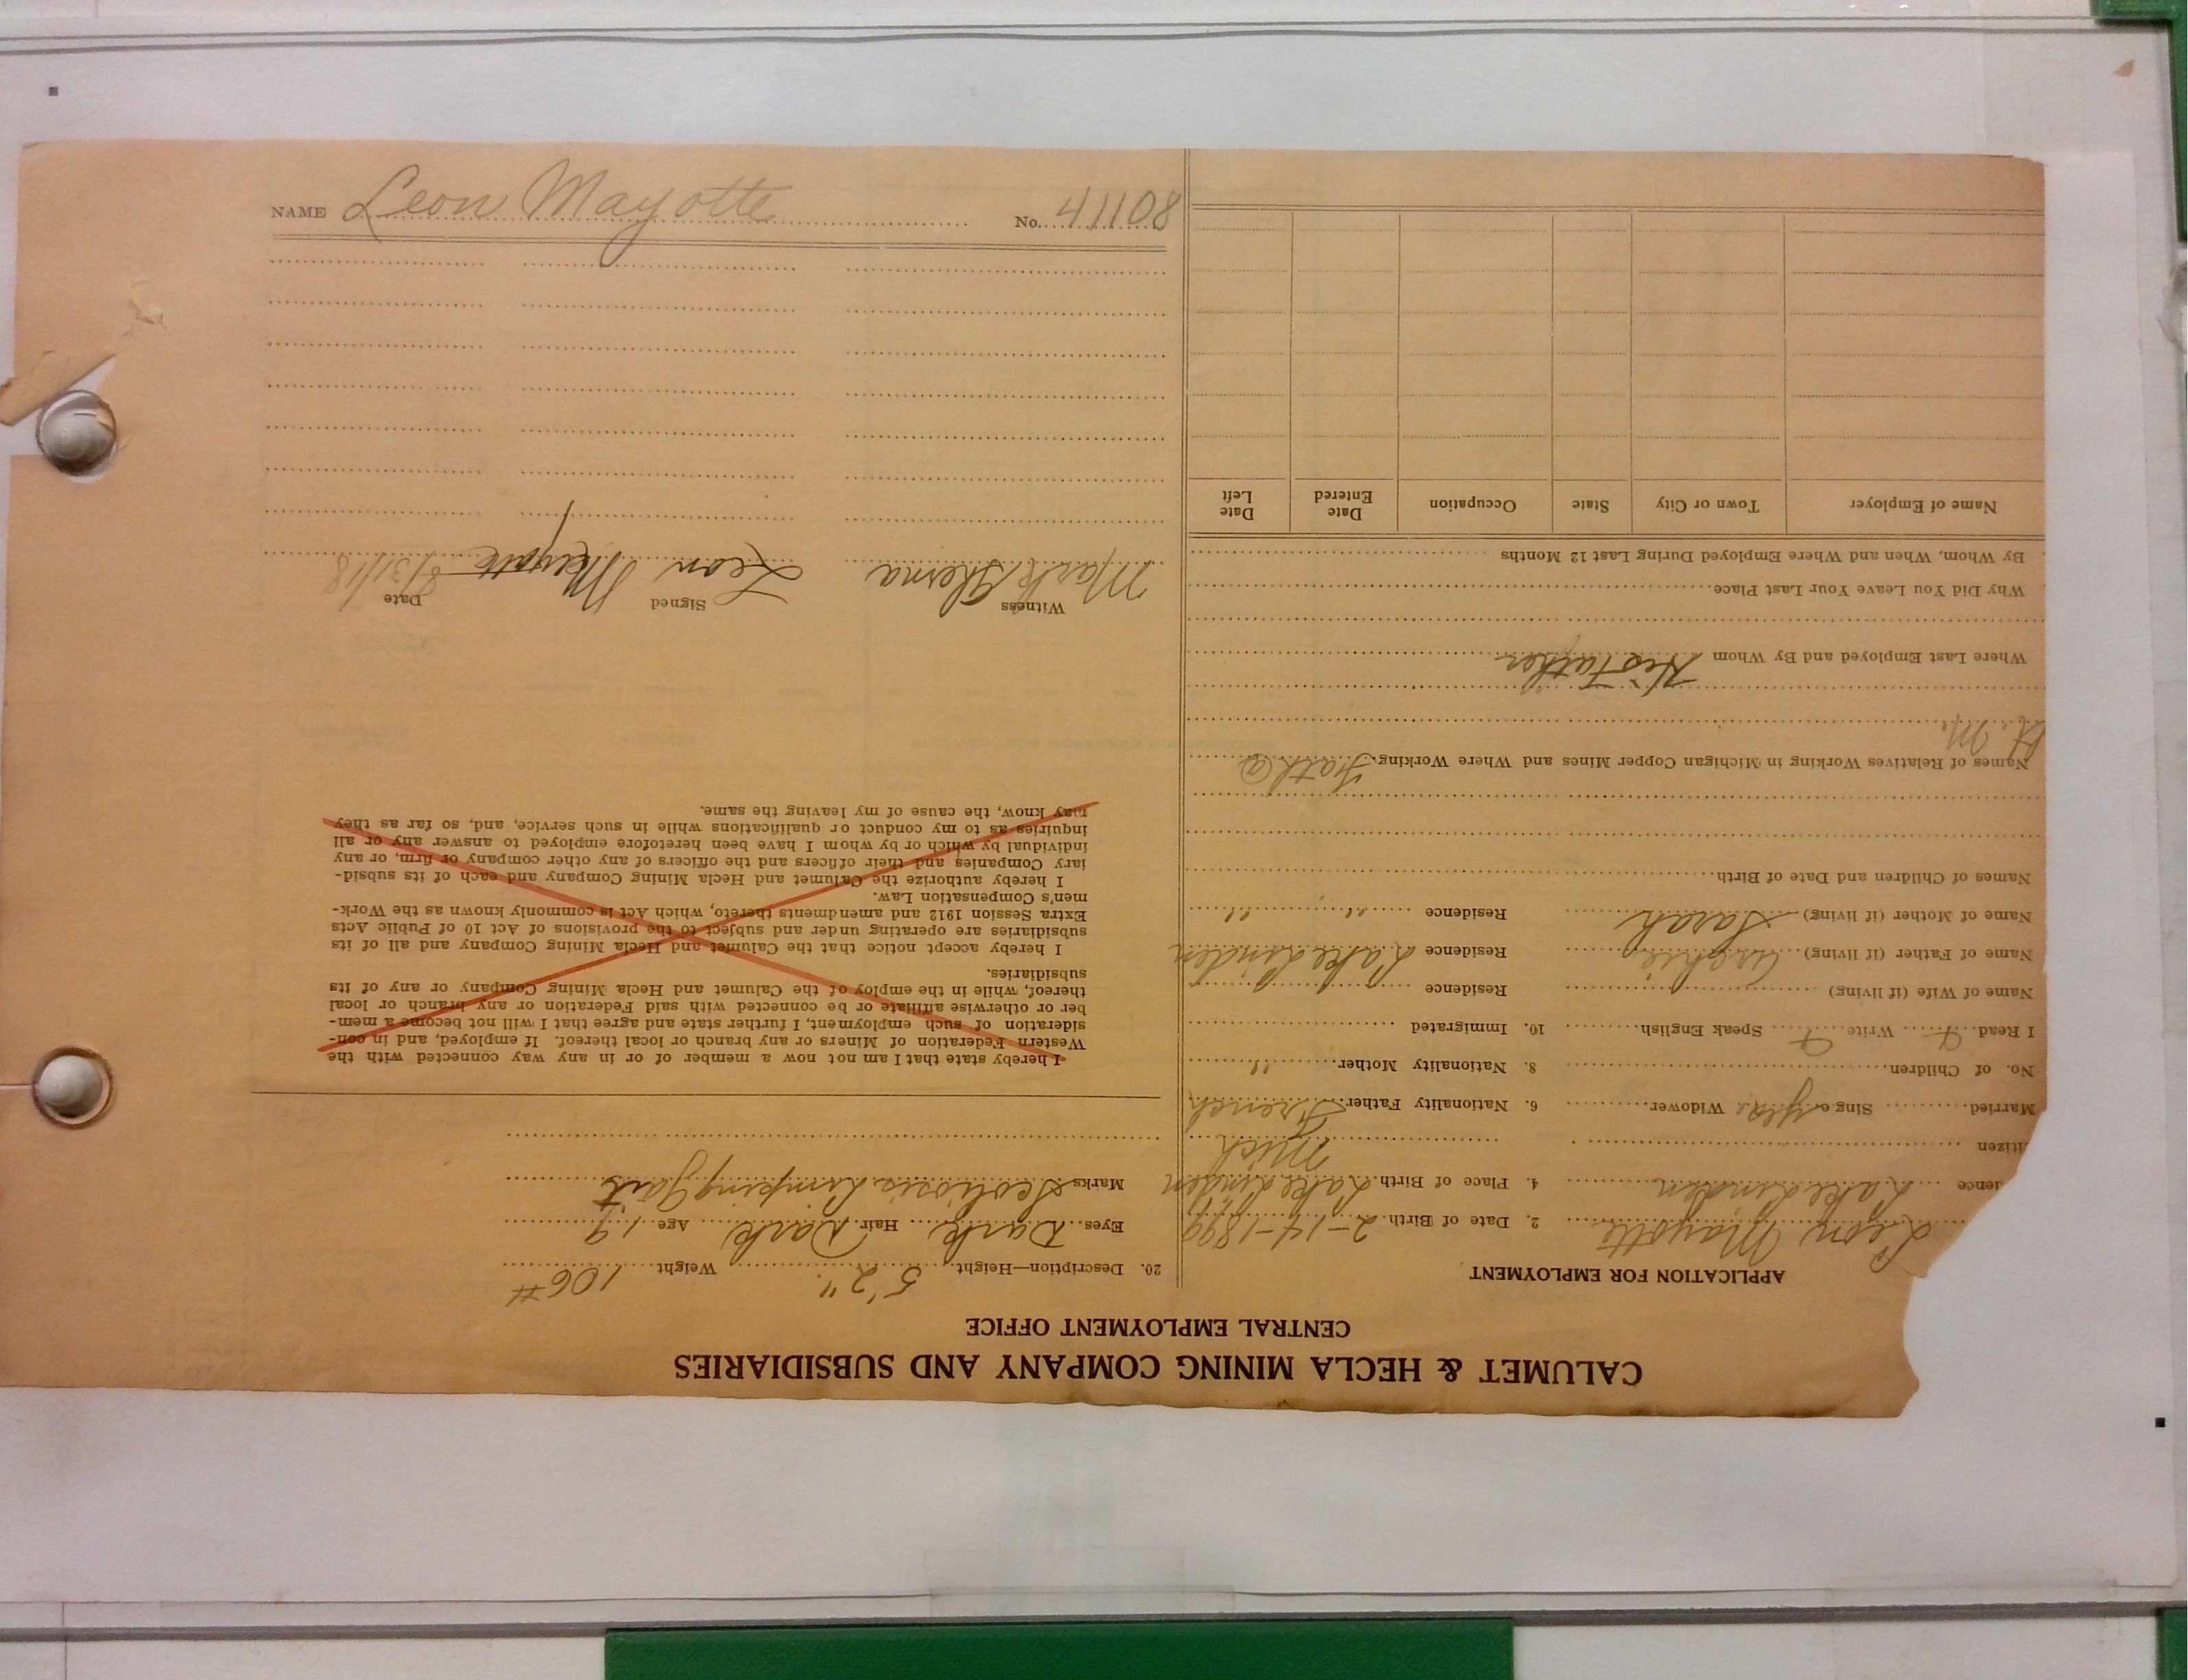 CALUMET & HECLA MINING COMPANY AND SUBSIDIARIES
CENTRAL EMPLOYMENT OFFICE
APPLICATION FOR EMPLOYMENT
Leon Mayotte 2. Date of Birth 2-14-1899
dence Lake Linden 4. Place of Birth Lake Linden
itizen Mich
Married Single yes. Widower 6. Nationality Father French
No. of Children 8. Nationality Mother "
I Read Write Speak English 10. Immigrated
Name of Wife (if living) Residence
Name of Father (if living) Residence Lake Linden
Name of Mother (if living) Sarah Residence " "
Names of Children and Date of Birth
Names of Relatives Working in Michigan Copper Mines and Where Working. Fath @
H. M.
Where Last Employed and By Whom His Father
Why Did You Leave Your Last Place
By Whom, When and Where Employed During Last 12 Months
Name of Employer Town or City State Occupation Date Entered Date Left
20. Description—Height 5' 2" Weight 106 #
Eyes Dark Hair Dark Age 19
Marks Scoliosis Limping Gait
I hereby state that I am not now a member of or in any way connected with the
Western Federation of Miners or any branch or local thereof. If employed, and in con-
sideration of such employment, I further state and agree that I will not become a mem-
ber or otherwise affiliate or be connected with said Federation or any branch or local
thereof, while in the employ of the Calumet and Hecla Mining Company or any of its
subsidiaries.
I hereby accept notice that the Calumet and Hecla Mining Company and all of its
subsidiaries are operating under and subject to the provisions of Act 10 of Public Acts
Extra Session 1912 and amendments thereto, which Act is commonly known as the Work-
men's Compensation Law.
I hereby authorize the Calumet and Hecla Mining Company and each of its subsid-
iary Companies and their officers and the officers of any other company or firm, or any
individual by which or by whom I have been heretofore employed to answer any or all
inquiries as to my conduct or qualifications while in such service, and, so far as they
may know, the cause of my leaving the same.
Witness Signed Date
Mark Leon Mayotte 8/31/18
NAME Leon Mayotte No. 41108